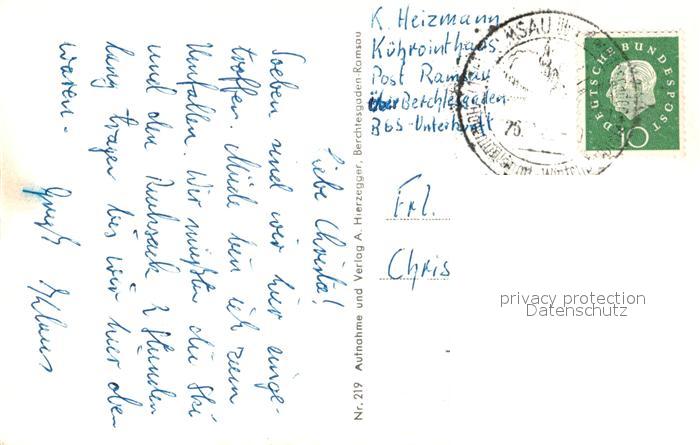 Liebe Christa!
Soeben sind wir hier einge-
troffen. Müde bin ich zum
Umfallen. Wir mußten die Ski
und den Rucksack 2 Stunden
lang tragen bis wir hier oben
waren.
Klaus
Nr. 219 Aufnahme und Verlag A. Hierzegger, Berchtesgaden-Ramsau
K. Heizmann
Kührointhaus
Post Ramsau
über Berchtesgaden
BGS-Unterkunft
RAMSAU
DEUTSCHE BUNDESPOST
10
Frl.
Chris
privacy protection
Datenschutz